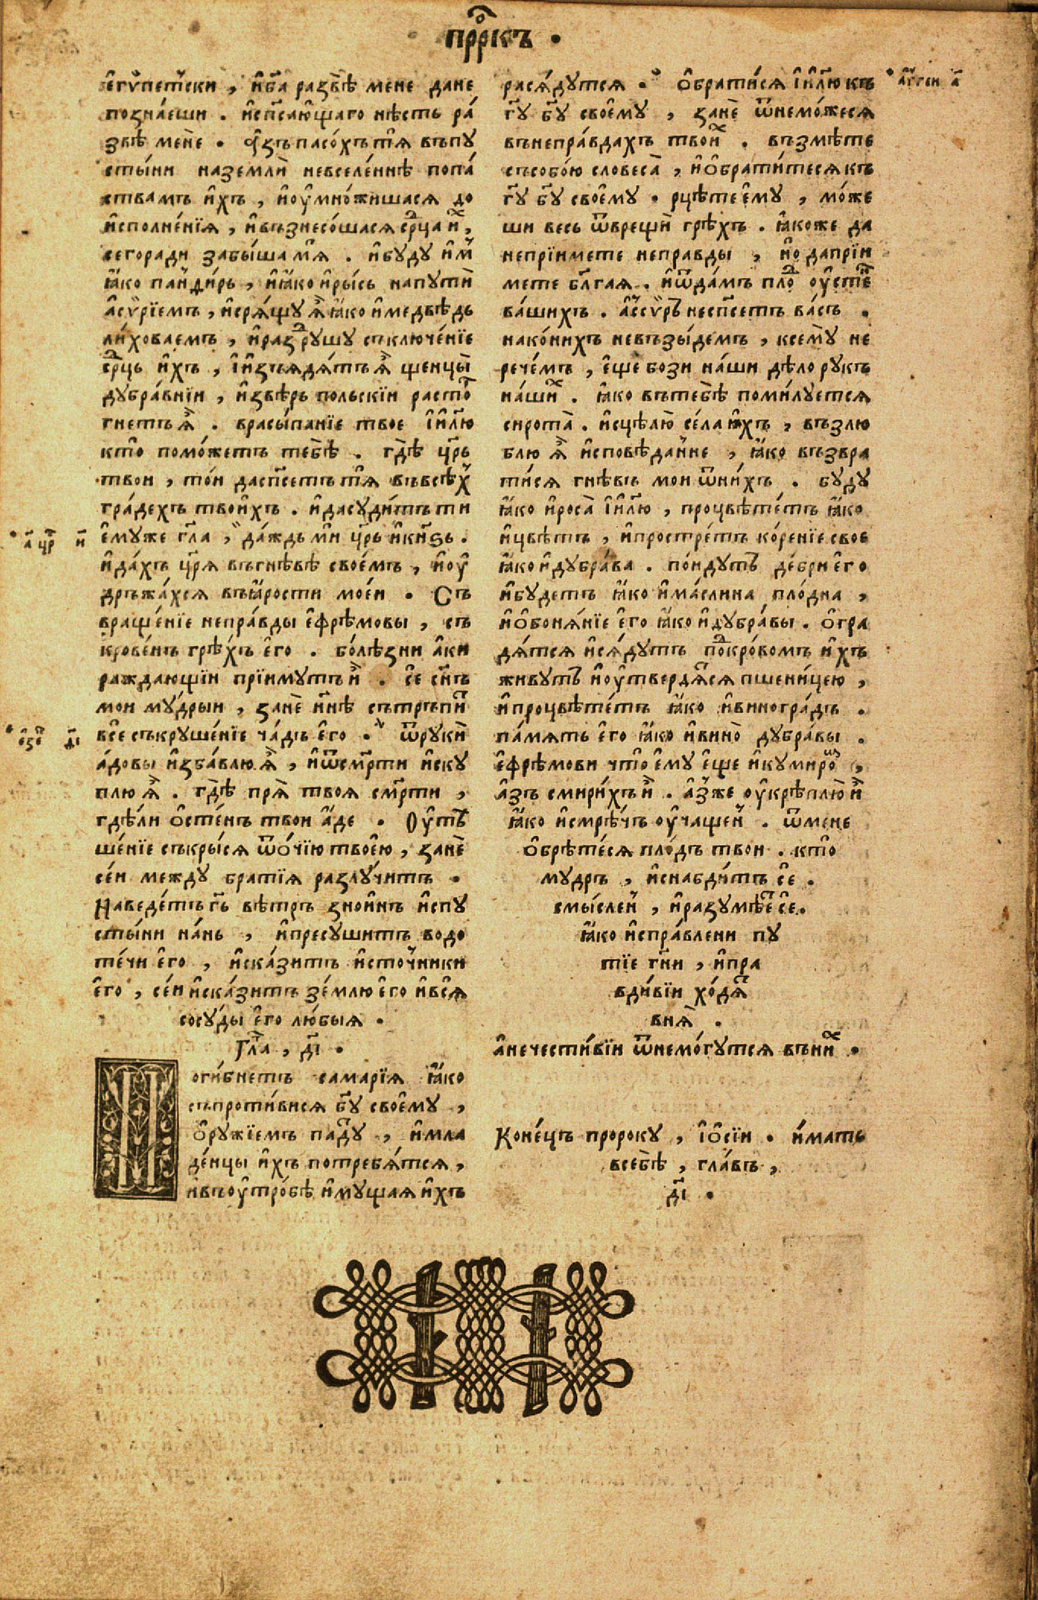 прⷪ҇ркъ .
є҆гѵ́петꙿски , и҆ б҃а развѣ̀ мене дане
позна́еши . и҆ сп҃са́ющаго нѣсть ра́
звѣ менѐ . а҆́зъ пасо́хъ тѧ̀ въ пꙋ
сты́ни на землѝ невселе́ннѣ по па́
ствамъ и҆́хъ , и҆ оу҆мно́жишасѧ до
и҆сполне́нїѧ , и҆ възнесо́шасѧ срⷣца и҆́хъ ,
сего ради забы́ша мѧ̀ . и҆ бꙋдꙋ и҆́мъ
ꙗ҆́ко панди́рь , и҆ ꙗ҆́ко и҆ ры́сь на пꙋтѝ
а҆сѵ́рїемъ , и҆ срѧ́щꙋ ѧ҆̀ ꙗ҆́ко и҆ медвѣдь
ли́ховаемъ , и҆ разрꙋ́шꙋ съключе́нїе
срⷣць и҆́хъ , и҆ и҆зъѧдѧ́тъ ѧ҆̀ щенцы̀
дꙋбра́внїи , и҆ звѣ́рь польскїи расто́
гнетъ ѧ҆̀ . в расы́панїе твое і҆и҃лю
кто̀ помо́жетъ тебѣ̀ . гдѣ̀ цр҃ь
твои , то́и да сп҃сетъ тѧ̀ въ всѣ́хъ
гра́дехъ твои́хъ . и҆ да сꙋди́тъ ти
є҆мꙋже гл҃а , да́ждь мѝ цр҃ѧ и҆ кн҃зѧ .
а҃ црⷭ҇ и҃
и҆ да́хъ цр҃ѧ въ гнѣ́вѣ свое́мъ , и҆ оу҆
дръжа́хсѧ въ ꙗ҆́рости мое́и . Съ
враще́нїе непра́вды є҆фрѣ́мовы , съ
крове́нъ грѣ́хъ є҆го̀ . болѣ́зни а҆́ки
ражда́ющїи прїи́мꙋтъ и҆̀ . се сн҃ъ
мои мꙋ́дрыи , занѐ нн҃ѣ не сътръпи́
все съкрꙋше́нїе ча́дъ є҆го̀ . ѿ рꙋкѝ
є҆зеⷦ҇ л҃і
а҆́довы и҆зба́влю ѧ҆̀ , и҆ ѿ см҃рти и҆скꙋ
плю ѧ҆̀ . гдѣ̀ прѧ̀ твоѧ см҃рти ,
гдѣ́ ли ѻ҆сте́нъ твои а҆́де . Оу҆тѣ
ше́нїе съкры́сѧ ѿ ѻ҆́чїю твое́ю , занѐ
се́и междꙋ бра́тїѧ разлꙋчи́тъ .
Наведе́тъ гⷭ҇ь вѣ́тръ зно́инъ и҆с пꙋ
сты́ни на́нь , и҆ пресꙋ́шитъ водо
те́чи є҆го̀ , и҆ ска́зитъ и҆сто́чники
є҆го̀ , се́и и҆ска́зитъ зе́млю є҆го̀ и҆ всѧ̀
сосꙋ́ды є҆го̀ лю́быѧ .
Гла҃ , д҃і .
Поги́бнетъ самарїѧ ꙗ҆́ко
съпроти́висѧ бг҃ꙋ своє́мꙋ ,
ѻ҆рꙋ́жїемъ падꙋ́ , и҆ мла
де́нцы и҆́хъ потребѧ́тсѧ ,
и҆ въ оу҆тро́бѣ и҆мꙋщаѧ и҆́хъ
расѧ́дꙋтсѧ . ѻ҆брати́сѧ і҆и҃лю къ
гⷭ҇ꙋ бг҃ꙋ своє́мꙋ , занѐ и҆знемо́жесѧ
въ непра́вдахъ твои́хъ . възмѣ́те
съ собо́ю словеса̀ , и҆ ѻ҆брати́тесѧ къ
гⷭ҇ꙋ бг҃ꙋ своє́мꙋ . рцѣ́те є҆мꙋ̀ , мо́же
ши весь ѿврещѝ грѣ́хъ . ꙗ҆́коже да
не прїи́мете непра́вды , но̀ да прїи́
мете бл҃га́ѧ . и҆ ѿда́мъ плоⷣ оу҆сте́нъ
ва́шихъ . а҆ссѵ́ръ не сп҃сетъ ва́съ .
на ко́нихъ не възы́демъ , к семꙋ̀ не
рече́мъ , є҆ще бо́зи на́ши дѣло рꙋкъ
на́шиⷯ . ꙗ҆́ко въ тебѣ̀ поми́лꙋетсѧ
сирота̀ . и҆сцѣлю̀ се́ла и҆́хъ , възлю
блю ѧ҆̀ и҆сповѣ́данне , ꙗ҆́ко възвра
ти́сѧ гнѣ́въ мои ѿ ни́хъ . бꙋдꙋ
ꙗ҆́ко и҆ роса̀ і҆и҃лю , процвѣте́тъ ꙗ҆́ко
и҆ цвѣ́тъ , и҆ простре́тъ коре́нїе свое
ꙗ҆́ко и҆ дꙋбра́ва . по́идꙋтъ де́бри є҆го
и҆ бꙋдетъ ꙗ҆́ко и҆ ма́слина пло́дна ,
и҆ ѻ҆боня́нїе є҆го̀ ꙗ҆́ко и҆ дꙋбра́вы . ѻ҆гра
дѧ́тсѧ и҆ сѧ́дꙋтъ под кро́вомъ и҆́хъ
живꙋтъ и҆ оу҆твердѧ́тсѧ пшени́цею ,
и҆ процвѣте́тъ ꙗ҆́ко и҆ виногра́дъ .
па́мѧть є҆го̀ ꙗ҆́ко и҆ вино̀ дꙋбра́вы .
є҆фрѣ́мови что̀ є҆мꙋ̀ є҆ще и҆ кꙋми́роⷨ ,
а҆́зъ смири́хъ и҆̀ . а҆́зже оу҆крѣплю́ и҆̀
ꙗ҆́ко и҆ смрѣ́чь оу҆чаще́нъ . ѿ мене
ѻ҆брѣ́тесѧ пло́дъ твои . кто̀
мꙋдръ , и҆ снабди́тъ сѐ .
смы́сленъ , и҆ разꙋмѣ́етъ сѐ .
ꙗ҆́ко и҆спра́влени пꙋ
тїе гⷭ҇ни , и҆ пра
вди́вїи хо́дѧⷮ
в нѧ̀ .
а҆ нечести́вїи и҆знемо́гꙋтсѧ въ ни́хъ .
а҆ггеи а҃
Коне́цъ проро́кꙋ , і҆ѻсі́и . и҆́мать
в себѣ̀ , гла́въ ,
д҃і .